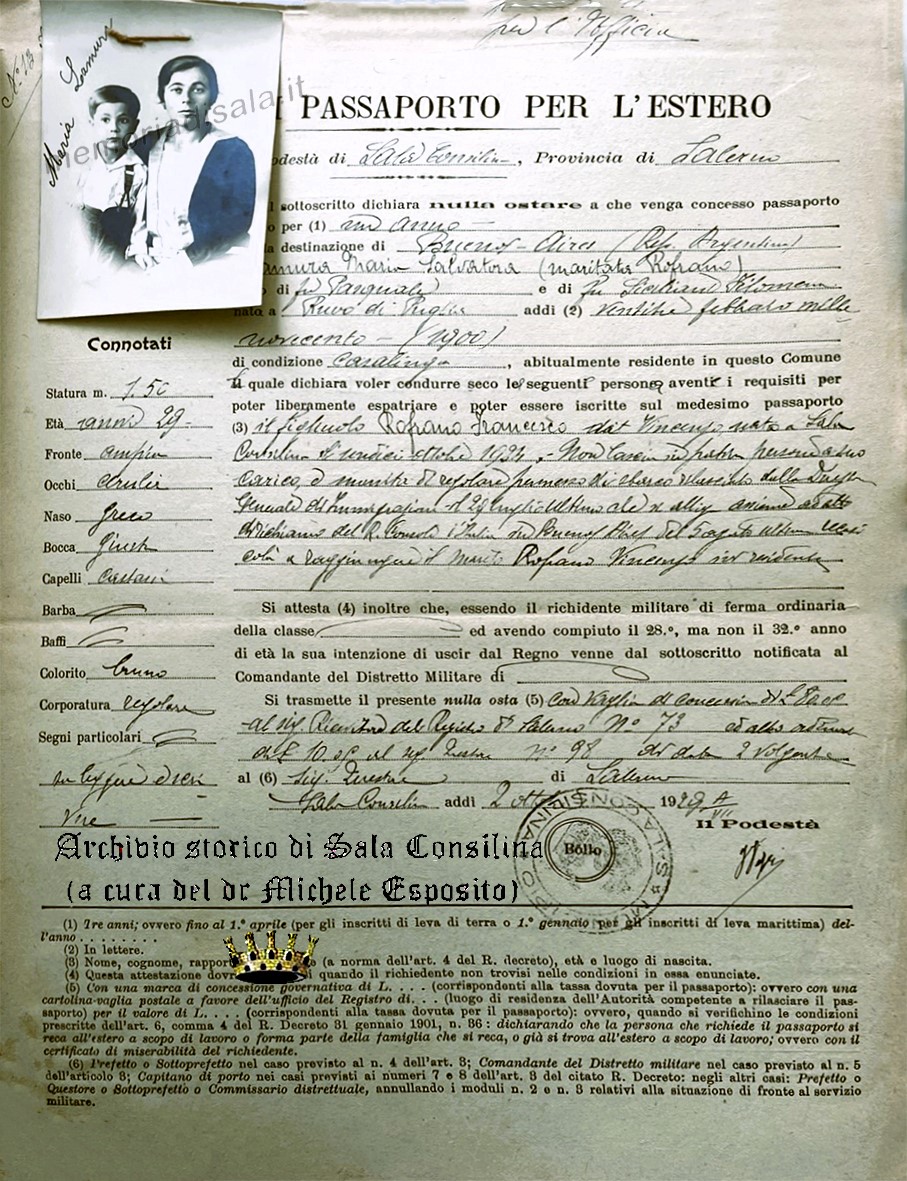 per l'Officio
N. 13
Maria Lamura
memoriadisala.it
PASSAPORTO PER L'ESTERO
odestà di Sala Consilina, Provincia di Salerno
l sottoscritto dichiara nulla ostare a che venga concesso passaporto
o per (1) un anno —
la destinazione di Buenos-Aires (Rep. Argentina)
amura Maria Salvatora (maritata Rofrano)
o di fu Pasquale e di fu Siciliani Filomena
nato a Ruvo di Puglia addì (2) ventitre febbraio mille
novecento — (1900)
di condizione casalinga, abitualmente residente in questo Comune
il quale dichiara voler condurre seco le seguenti persone aventi i requisiti per
poter liberamente espatriare e poter essere iscritte sul medesimo passaporto
(3) il figliuolo Rofrano Francesco di Vincenzo nato a Sala
Consilina l'undici ottobre 1924. - Non lascia in patria persone a suo
carico, è munita di regolare permesso di sbarco rilasciato dalla Direz.
Generale di Immigrazione il 29 luglio ultimo che si allig assieme ad atto
di richiamo del R. Console d'Italia in Buenos Aires del
a raggiungere il marito Rofrano Vincenzo ivi residente
Connotati
Statura m. 1.50
Età anni 29 -
Fronte ampia
Occhi
Naso greco
Bocca giusta
Capelli castani
Barba
Baffi
Colorito bruno
Corporatura regolare
Segni particolari
sa leggere e scri
vere —
Si attesta (4) inoltre che, essendo il richidente militare di ferma ordinaria
della classe ed avendo compiuto il 28.º, ma non il 32.º anno
di età la sua intenzione di uscir dal Regno venne dal sottoscritto notificata al
Comandante del Distretto Militare di
Si trasmette il presente nulla osta (5) con vaglia di concessione di L.
al sig. Ricevitore del Registro di Salerno Nº 73 ed altro ordinario
di L. 10.50 al sig. Questore nº 98 di data 2 volgente
al (6) Sig. Questore di Salerno
Sala Consilina addì 2 ottobre 1929 A VII
Il Podestà
Bollo
Archivio storico di Sala Consilina
(a cura del dr Michele Esposito)
(1) Tre anni; ovvero fino al 1.º aprile (per gli inscritti di leva di terra o 1.º gennaio per gli inscritti di leva marittima) del-
l'anno . . . . . . . .
(2) In lettere.
(3) Nome, cognome, rapport e (a norma dell'art. 4 del R. decreto), età e luogo di nascita.
(4) Questa attestazione dovr i quando il richiedente non trovisi nelle condizioni in essa enunciate.
(5) Con una marca di concessione governativa di L. . . . (corrispondenti alla tassa dovuta per il passaporto): ovvero con una
cartolina-vaglia postale a favore dell'ufficio del Registro di. . . (luogo di residenza dell'Autorità competente a rilasciare il pas-
saporto) per il valore di L. . . . (corrispondenti alla tassa dovuta per il passaporto): ovvero, quando si verifichino le condizioni
prescritte dell'art. 6, comma 4 del R. Decreto 31 gennaio 1901, n. 36: dichiarando che la persona che richiede il passaporto si
reca all'estero a scopo di lavoro o forma parte della famiglia che si reca, o già si trova all'estero a scopo di lavoro; ovvero con il
certificato di miserabilità del richiedente.
(6) Prefetto o Sottoprefetto nel caso previsto al n. 4 dell'art. 3; Comandante del Distretto militare nel caso previsto al n. 5
dell'articolo 3; Capitano di porto nei casi previsti ai numeri 7 e 8 dell'art. 3 del citato R. Decreto: negli altri casi: Prefetto o
Questore o Sottoprefetto o Commissario distrettuale, annullando i moduli n. 2 e n. 3 relativi alla situazione di fronte al servizio
militare.